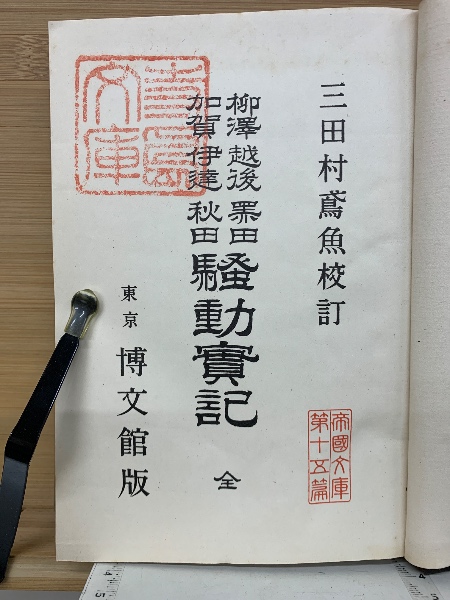 三田村鳶魚校訂
柳澤 越後 黑田
加賀 伊達 秋田
騷動實記 全
東京 博文館版
帝國文庫
第十五篇